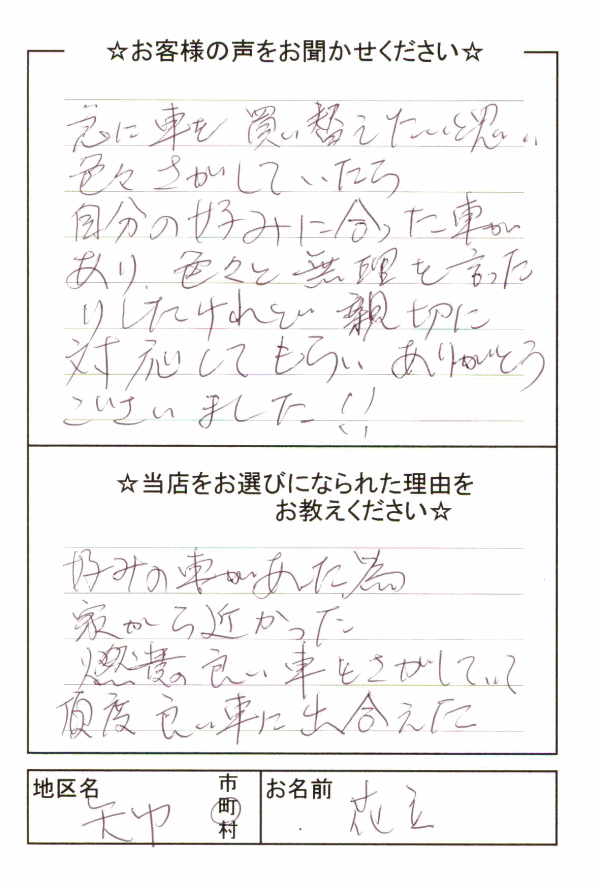 ☆お客様の声をお聞かせください☆
急に車を買い替えたいと思い
色々さがしていたら
自分の好みに合った車が
あり、色々と無理を言った
りしたけれど親切に
対応してもらいありがとう
ございました!!
☆当店をお選びになられた理由を
お教えください☆
好みの車があった為
家から近かった
燃費の良い車をさがしていて
丁度良い車に出合えた
地区名 矢巾 市町村
お名前 花立